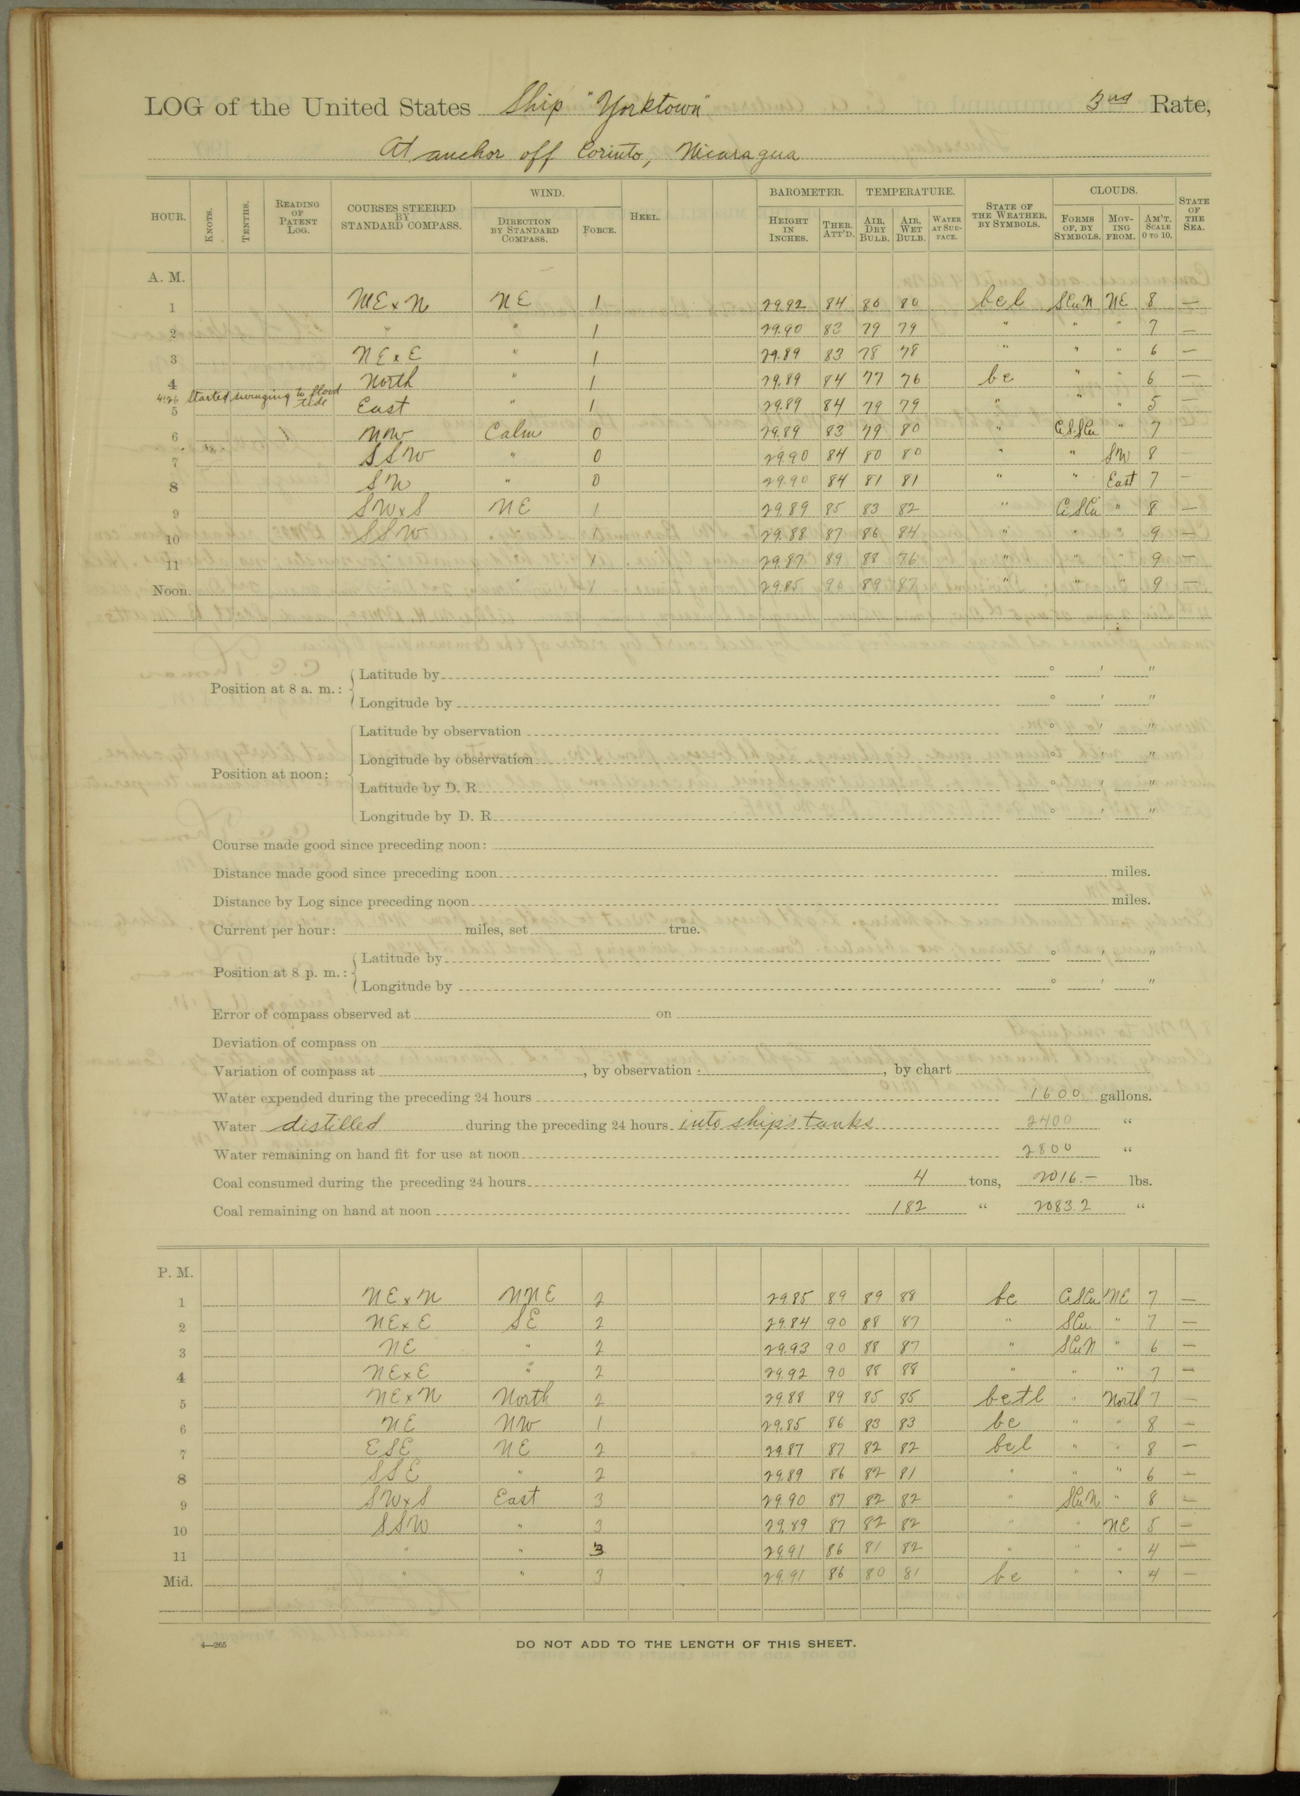 LOG of the United States Ship "Yorktown" 3rd Rate,
At anchor off Corinto, Nicaragua
HOUR. KNOTS. TENTHS. READING OF PATENT LOG. COURSES STEERED BY STANDARD COMPASS. WIND. DIRECTION BY STANDARD COMPASS. FORCE. HEEL. BAROMETER. HEIGHT IN INCHES. THER. ATT'D. TEMPERATURE. AIR, DRY BULB. AIR, WET BULB. WATER AT SURFACE. STATE OF THE WEATHER, BY SYMBOLS. CLOUDS. FORMS OF, BY SYMBOLS. MOVING FROM. AM'T. SCALE 0 TO 10. STATE OF THE SEA.
A. M.
1 NE x N NE 1 29.92 84 80 80 bcl SCuN NE 8 —
2 " " 1 29.90 83 79 79 " " " 7 —
3 NE x E " 1 29.89 83 78 78 " " " 6 —
4 North " 1 29.89 84 77 76 bc " " 6 —
4:26 Started swinging to flood tide
5 East " 1 29.89 84 79 79 " " " 5 —
6 NNW Calm 0 29.89 83 79 80 " C.S.SCu " 7 —
7 SSW " 0 29.90 84 80 80 " " SW 8 —
8 SW " 0 29.90 84 81 81 " " East 7 —
9 SW x S NE 1 29.89 85 83 82 " CiSCu " 8 —
10 SSW " 1 29.88 87 86 84 " " " 9 —
11 " " 1 29.87 89 88 76 " " " 9 —
Noon. " " 1 29.85 90 89 87 " " " 9 —
Position at 8 a. m.: Latitude by ° ′ ″
Longitude by ° ′ ″
Position at noon: Latitude by observation ° ′ ″
Longitude by observation ° ′ ″
Latitude by D. R. ° ′ ″
Longitude by D. R. ° ′ ″
Course made good since preceding noon:
Distance made good since preceding noon miles.
Distance by Log since preceding noon miles.
Current per hour: miles, set true.
Position at 8 p. m.: Latitude by ° ′ ″
Longitude by ° ′ ″
Error of compass observed at on
Deviation of compass on
Variation of compass at , by observation , by chart
Water expended during the preceding 24 hours 1600 gallons.
Water distilled during the preceding 24 hours into ship's tanks 2400 "
Water remaining on hand fit for use at noon 2800 "
Coal consumed during the preceding 24 hours 4 tons, 2016.— lbs.
Coal remaining on hand at noon 182 " 2083.2 "
P. M.
1 NE x N NNE 2 29.85 89 89 88 bc CiSCu NE 7 —
2 NE x E SE 2 29.84 90 88 87 " SCu " 7 —
3 NE " 2 29.93 90 88 87 " SCuN " 6 —
4 NE x E " 2 29.92 90 88 88 " " " 7 —
5 NE x N North 2 29.88 89 85 85 bctl " North 7 —
6 NE NW 1 29.85 86 83 83 bc " " 8 —
7 ESE NE 2 29.87 87 82 82 bcl " " 8 —
8 SSE " 2 29.89 86 82 81 " " " 6 —
9 SW x S East 3 29.90 87 82 82 " SCuN " 8 —
10 SSW " 3 29.89 87 82 82 " " NE 5 —
11 " " 3 29.91 86 81 82 " " " 4 —
Mid. " " 3 29.91 86 80 81 bc " " 4 —
4—265 DO NOT ADD TO THE LENGTH OF THIS SHEET.